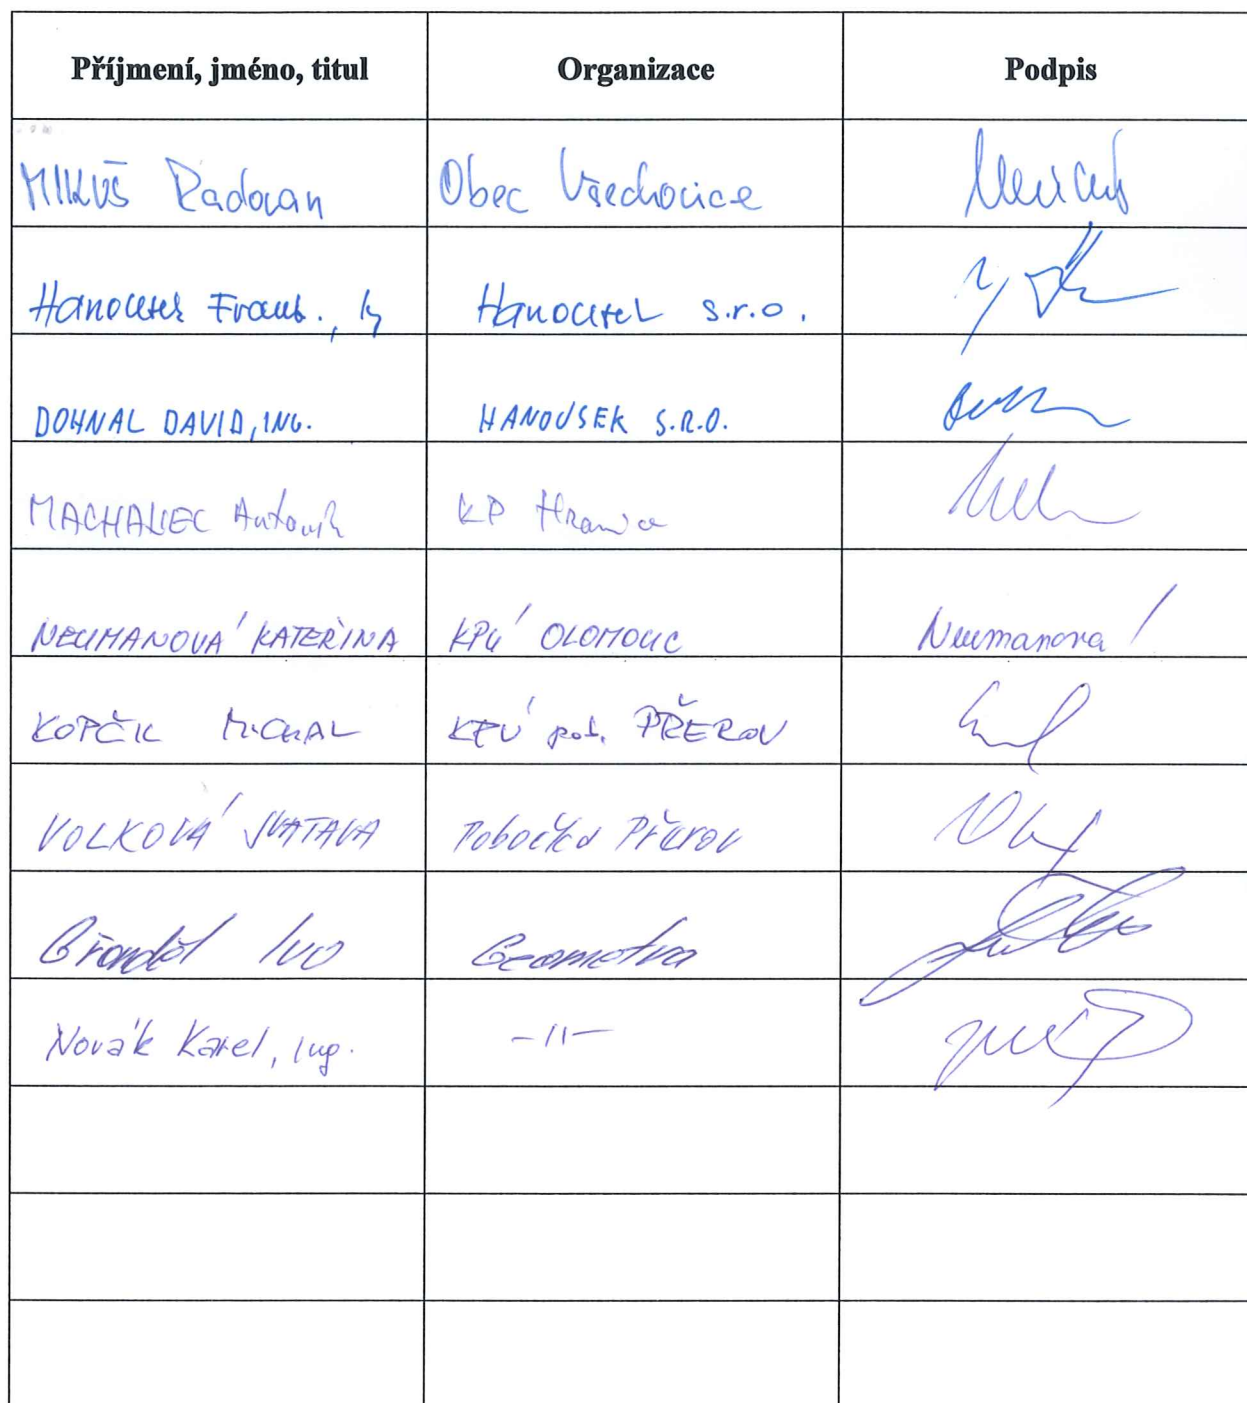 Příjmení, jméno, titul Organizace Podpis
MIKUŠ Radovan Obec Všechovice
Hanousek Frant., Hanousek s.r.o.
DOHNAL DAVID, ING. HANOUSEK S.R.O.
MACHALEC Antonín KP Hranice
NEUMANOVÁ KATEŘINA KPÚ OLOMOUC Neumanová
KOPČIK MICHAL KPÚ pob. PŘEROV
VOLKOVÁ SVATAVA Pobočka Přerov
Ivo Geometra
Novák Karel, Ing. -II-